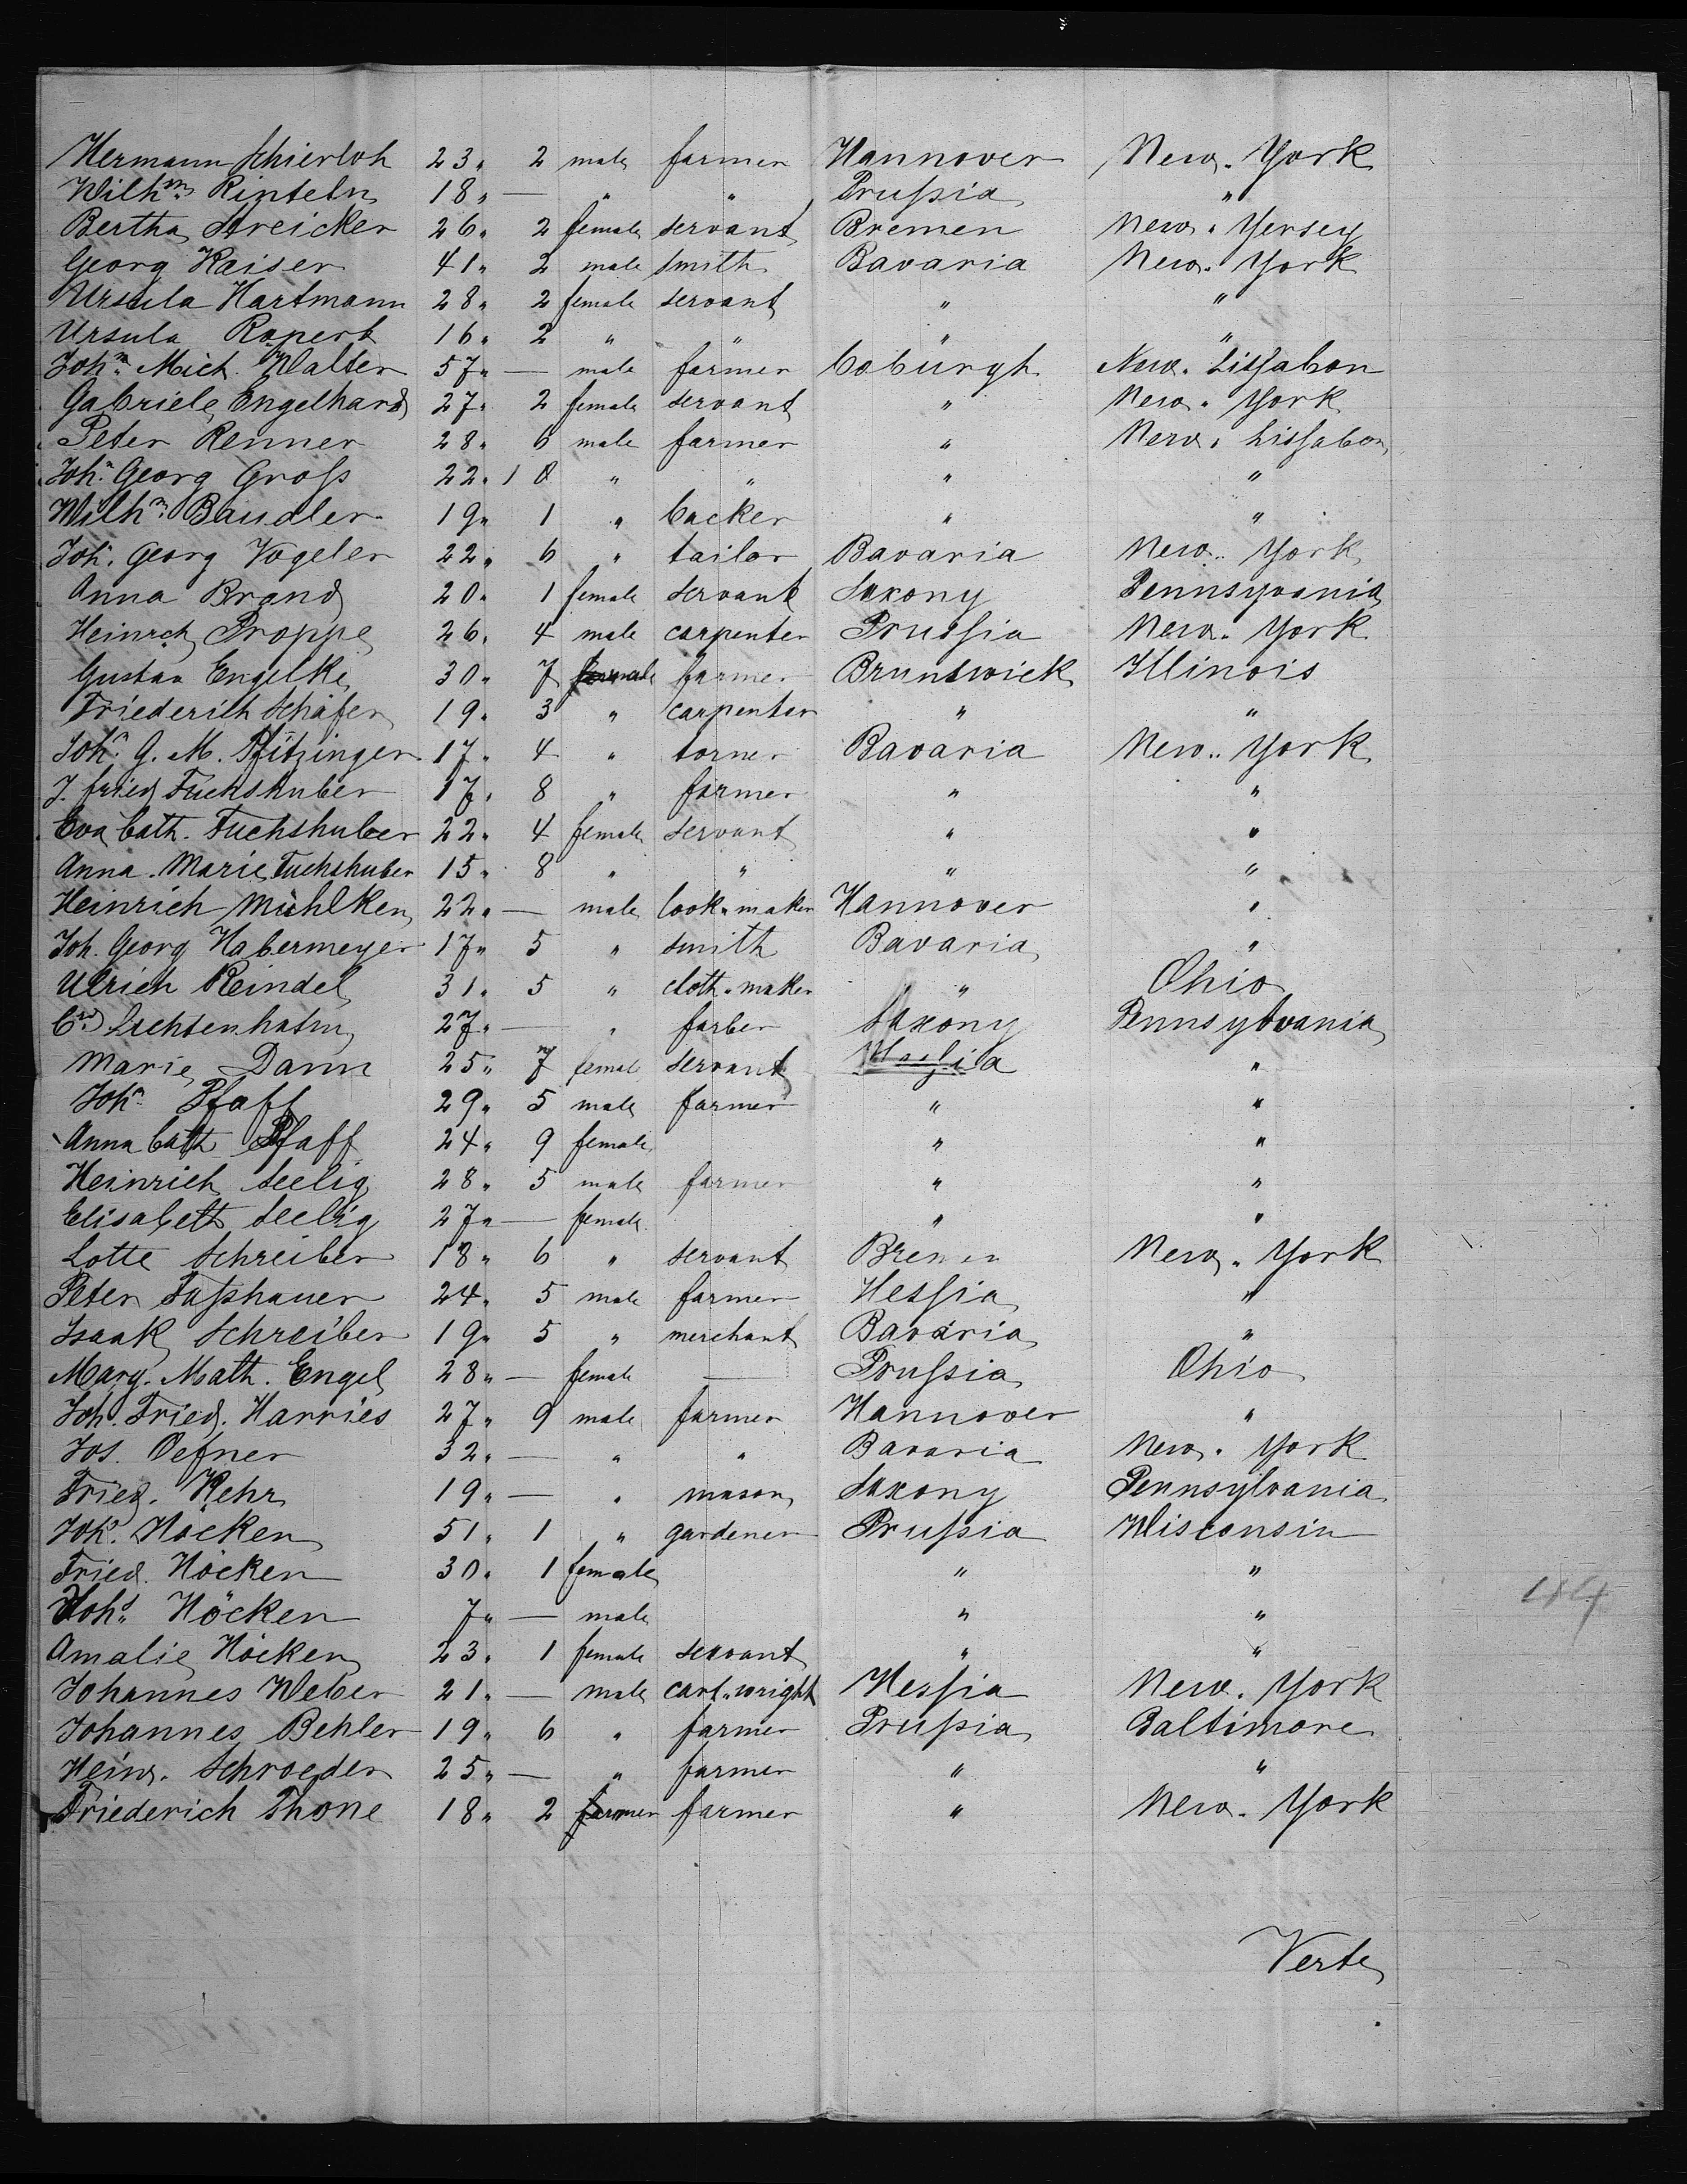 Hermann Schierloh 23 " 2 male farmer Hannover New " York
Wilhm Rinteln 18 " — " " Prußia "
Bertha Streicker 26 " 2 female servant Bremen New " Yersey
Georg Kaiser 41 " 2 male smith Bavaria New " York
Ursula Hartmann 28 " 2 female servant " "
Ursula Rapert 16 " 2 " " " "
John Mich. Walter 57 " — male farmer Coburgh New " Lissabon
Gabriele Engelhard 27 " 2 female servant " New " York
Peter Renner 28 " 6 male farmer " New " Lissabon
Joh: Georg Groß 22 " 10 " " " "
Wilhm Baudler 19 " 1 " backer " "
Joh. Georg Vogeler 22 " 6 " tailor Bavaria New " York
Anna Brand 20 " 1 female servant Saxony Pennsyvania
Heinrch Proppe 26 " 4 male carpenter Prussia New " York
Gustav Engelke 30 " 7 female farmer Brunswick Illinois
Friederich Schäfer 19 " 3 " carpenter " "
Joh: G. M. Pfitzinger 17 " 4 " torner Bavaria New " York
J. fried Fuchshuber 17 " 8 " farmer " "
Eva Cath. Fuchshuber 22 " 4 female servant " "
Anna Marie Fuchshuber 15 " 8 " " " "
Heinrich Mühlken 22 " — male look " maker Hannover "
Joh. Georg Habermeyer 17 " 5 " smith Bavaria "
Ulrich Reindel 31 " 5 " cloth " maker " Ohio
Crd Lichtenhahn 27 " — " farber Saxony Pennsylvania
Marie Dann 25 " 7 female servant "
Joh: Pfaff 29 " 5 male farmer " "
Anna Cath Pfaff 24 " 9 female " "
Heinrich Seelig 28 " 5 male farmer " "
Elisabeth Seelig 27 " — female " "
Lotte Schreiber 18 " 6 " servant Bremen New " York
Peter Faßhauer 24 " 5 male farmer Hessia "
Isaak Schreiber 19 " 5 " merchant Bavaria "
Marg. Math. Engel 28 " — female — Prußia Ohio
Joh. Fried. Harries 27 " 9 male farmer Hannover "
Jos. Oefner 32 " — " " Bavaria New " York
Fried. Kehr 19 " — " mason Saxony Pennsylvania
Joh: Höcken 51 " 1 " gardener Prußia Wisconsin
Fried. Höcken 30 " 1 female " "
Johs Höcken 7 " — male " "
Amalie Höcken 23 " 1 female servant " "
Johannes Weber 21 " — male cart " wright Hessia New " York
Johannes Behler 19 " 6 " farmer Prußia Baltimore
Heinr. Schroeder 25 " — " farmer " "
Friederich Thone 18 " 2 farmer farmer " New " York
Verte